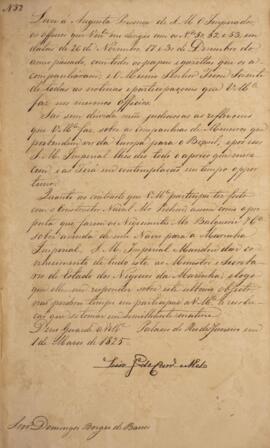 N 32
Levei á Augusta Presença de S. M. O Imperador,
os officios que V. Mce me dirigio com os Nos 51, 52, e 53, em
datas de 26 de Novembro, 17, e 31 de Dezembro do
anno passado, com todos os papeis e gazetas que os a-
companharam; e O Mesmo Senhor Ficou Sciente
de todas as noticias e participaçoens que V. Mce
faz nos mesmos officios.
São sem duvida mui judiciosas as reflexoens
que V. Mce faz sobre as Companhias de Mineiros que
pretendem vir da Europa para o Brasil, e por isso
S. M. Imperial lhes deo todo o apreço que mere-
cem, e as terá em contemplação em tempo oppor-
tuno.
Quanto ao contracto que V. Mce participa ter feito
com o Constructor Naval Mr. assim como a pro-
posta que fazem os Negociantes
sobre a venda de uma Náo para a Marinha
Imperial, S. M. Imperial Mandou dar co-
nhecimento de tudo isto ao Ministro e Secreta-
rio de Estado dos Negocios da Marinha; e logo
que elle me responder sobre este ultimo objecto
não perderei tempo em participar a V. Mce a resolu-
ção que se tomar em semelhante materia.
Deos Guarde a V. Mce Palacio do Rio de Janeiro em
1 de Março de 1825
Luiz José de Carvo e Mello
Snr Domingos Borges de Barros